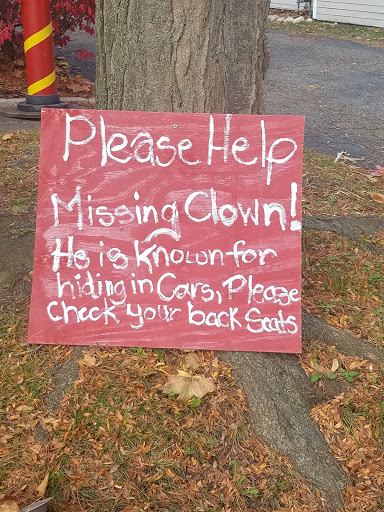 Please Help
Missing Clown!
He is known for
hiding in Cars, Please
check your back Seats